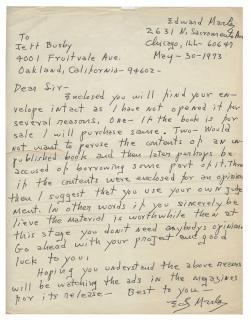 Edward Marlo
To
2631 N. Sacramento Ave
Jeff Busby
Chicago, Ill- 60647
4001 Fruitvale Ave.
May-30-1993
Oakland, California-94602-
Dear Sir-
Enclosed you will find your en-
velope intact as I have not opened it for
several reasons. One- If the book is for
sale I will purchase same. Two- Would
not want to peruse the contents of an un
published book and then later perhaps be
accused of borrowing some part of it. Three
if the contents were enclosed for an opinion
then I suggest that you use your own judge
ment. In other words if you sincerely be
lieve the material is worthwhile then at
this stage you don't need anybody's opinion
Go ahead with your project and good
luck to you.
Hoping you understand the above reasons
will be watching the ads in the magazines
for its release- Best to you-
Ed Marlo